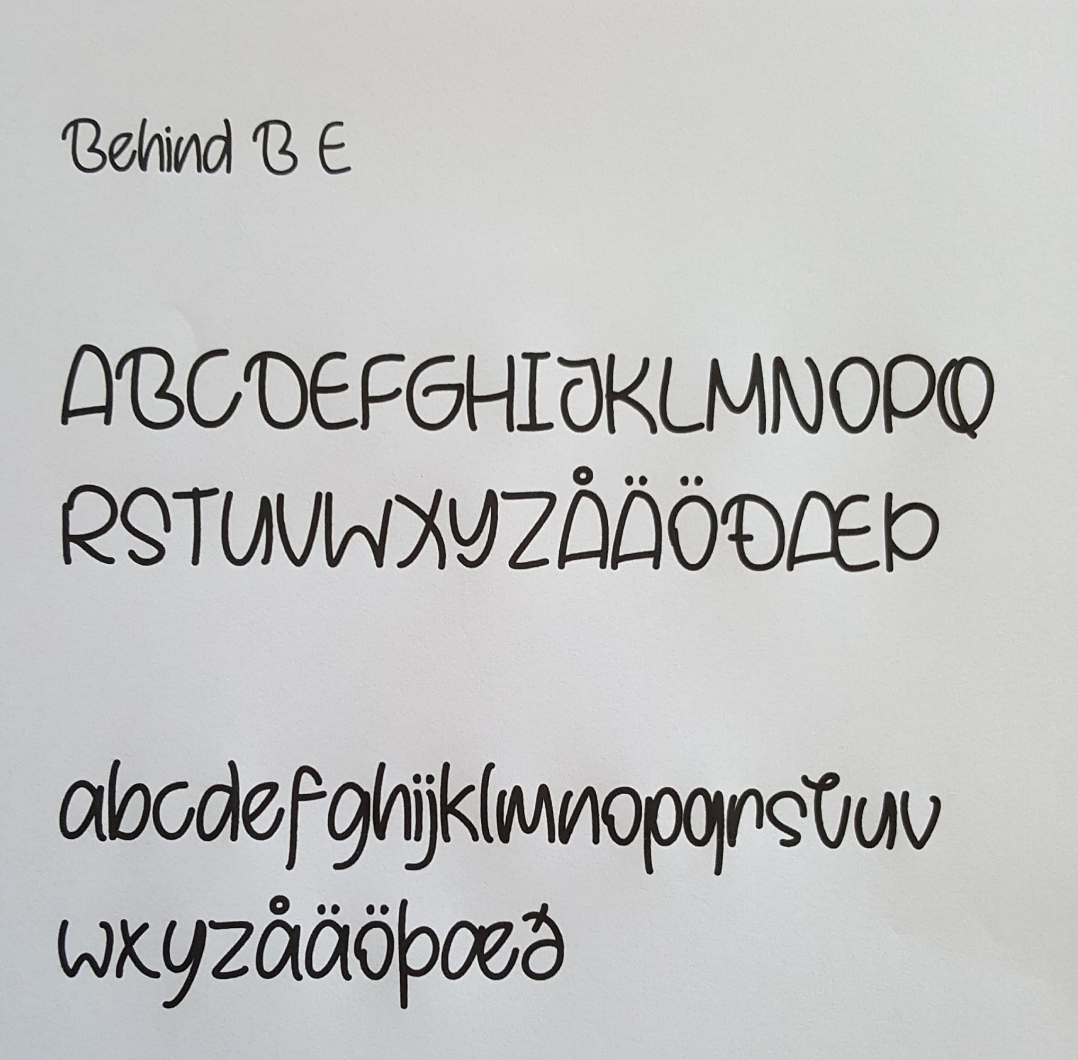 Behind B E
ABCDEFGHIJKLMNOPQ
RSTUVWXYZÅÄÖÐÆÞ
abcdefghijklmnopqrstuv
wxyzåäöþæð